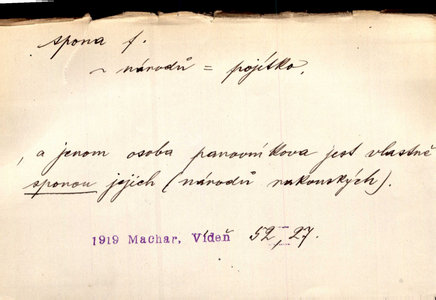 spona f.
~ národů = pojítko.
, a jenom osoba panovníkova jest vlastně
sponou jejich (národů rakouských).
1919 Machar, Vídeň 52, 27.